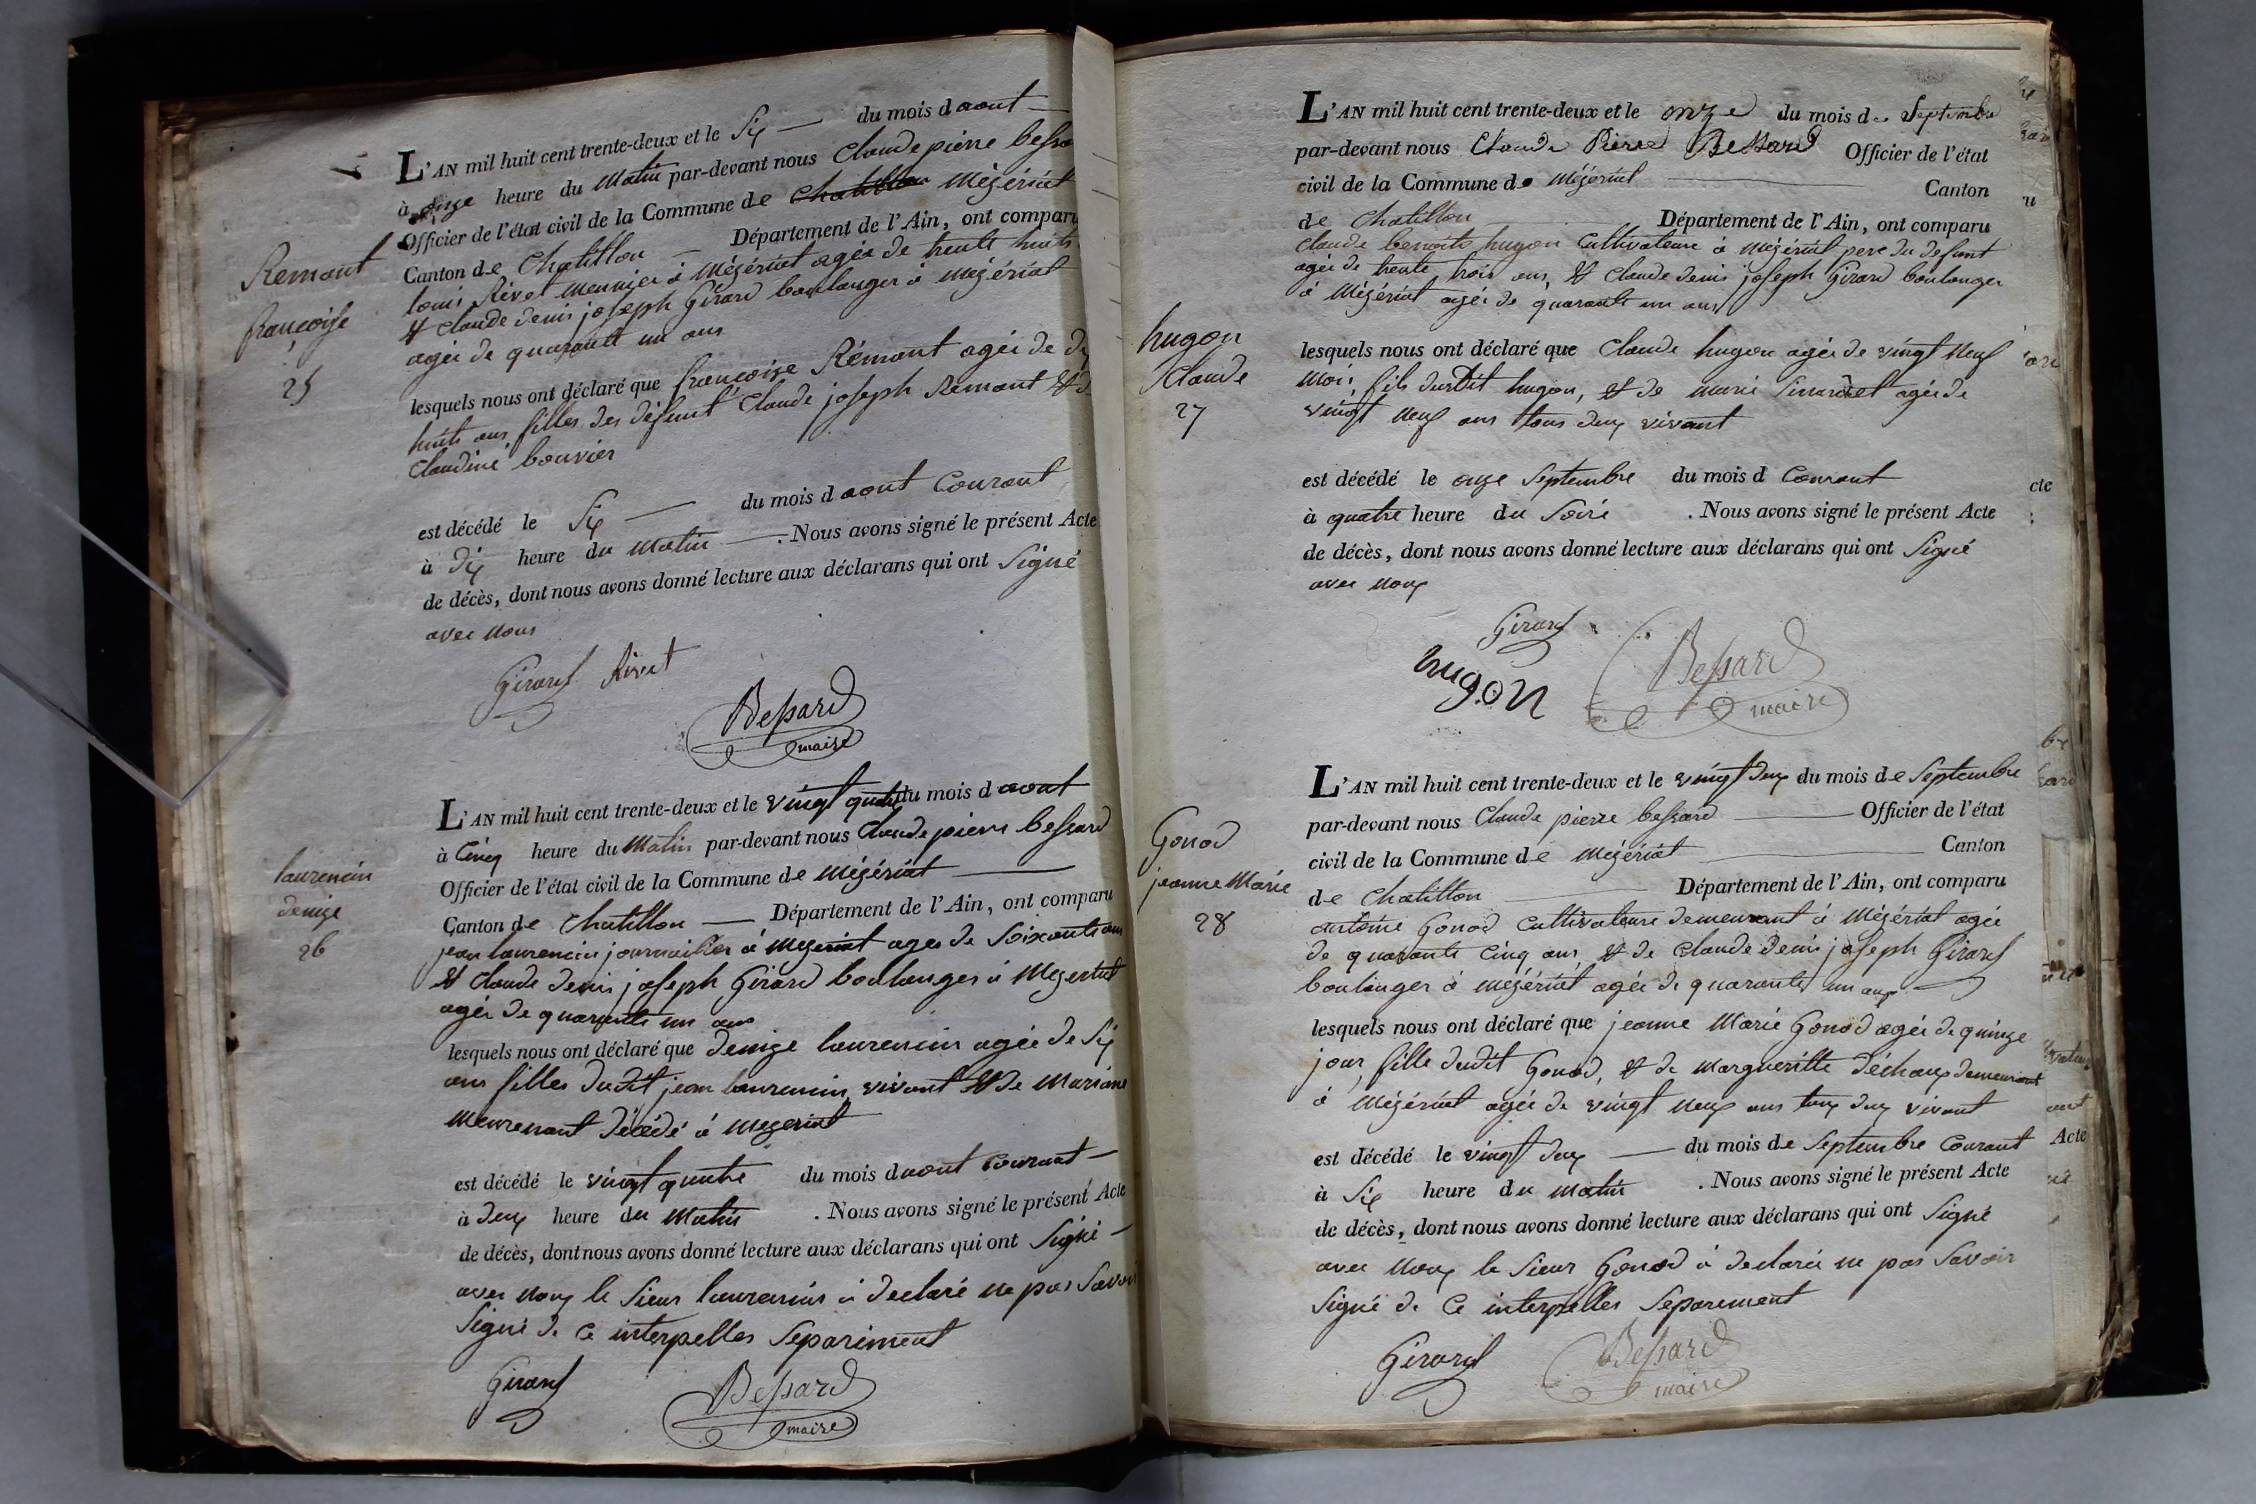 L'AN mil huit cent trente-deux et le Six du mois d aout
à onze heure du Matin par-devant nous Claude pierre bessa
Officier de l'état civil de la Commune de Mézériat
Canton de Chatillon Département de l'Ain, ont comparu
louis Rivet meunier à Mézériat agée de trente huits
& Claude denis joseph Girard boulanger à Mézériat
agée de quarante un ans
Remont
françoise
25
lesquels nous ont déclaré que françoise Rémont agée de di
huits ans filles des défunt Claude joseph Remont & d
Claudine bouvier
est décédé le Six du mois d aout Courant
à Dix heure du Matin . Nous avons signé le présent Acte
de décès, dont nous avons donné lecture aux déclarans qui ont Signé
avec nous
Girard Rivet
Bessard
maire
L'AN mil huit cent trente-deux et le vingt quatre du mois d aout
à Cinq heure du Matin par-devant nous Claude pierre bessard
Officier de l'état civil de la Commune de Mézériat
Canton de Chatillon Département de l'Ain, ont comparu
jean laurencin journaillier à Mezeriat ages de Soixante ans
& Claude denis joseph Girard boulanger à Mezeriat
agée de quarante un ans
laurencin
denize
26
lesquels nous ont déclaré que denize laurencin agée de Six
ans filles dudit jean laurencin vivant & de Mariane
Meurenant décédé à Mezeriat
est décédé le vingt quatre du mois d aout Courant
à deux heure du Matin . Nous avons signé le présent Acte
de décès, dont nous avons donné lecture aux déclarans qui ont Signé
avec nous le Sieur laurencin à declaré ne pas Savoir
Signé de Ce interpelles Separément
Girard
Bessard
maire
L'AN mil huit cent trente-deux et le onze du mois de Septembre
par-devant nous Claude Pierre Bessard Officier de l'état
civil de la Commune de Mézériat Canton
de Chatillon Département de l'Ain, ont comparu
Claude benoits hugon Cultivateure à Mézériat pere du defunt
agée de trente trois ans, & Claude denis joseph Girard boulanger
à Mézériat agée de quarante un ans
hugon
Claude
27
lesquels nous ont déclaré que Claude hugon agée de vingt neuf
Mois, fils dudit hugon, & de marie agée de
vingt neuf ans tous deux vivant
est décédé le onze Septembre du mois d Courant
à quatre heure du Soire . Nous avons signé le présent Acte
de décès, dont nous avons donné lecture aux déclarans qui ont Signé
avec nous
Girard
hugon
Bessard
maire
L'AN mil huit cent trente-deux et le vingt deux du mois de Septembre
par-devant nous Claude pierre bessard Officier de l'état
civil de la Commune de Mézériat Canton
de Chatillon Département de l'Ain, ont comparu
antoine Gonod Cultivateure demeurant à Mézériat agée
de quarante Cinq ans, & de Claude Denis joseph Girard
boulanger à Mézériat agée de quarante un ans
Gonod
jeanne Marie
28
lesquels nous ont déclaré que jeanne Marie Gonod agée de quinze
jour, fille dudit Gonod, & de Margueritte déchaux demeurant
à Mézériat agée de vingt neuf ans tous deux vivant
est décédé le vingt deux du mois de Septembre Courant
à Six heure du Matin . Nous avons signé le présent Acte
de décès, dont nous avons donné lecture aux déclarans qui ont Signé
avec nous le Sieur Gonod à declaré ne pas Savoir
Signé de Ce interpelles Separement
Girard
Bessard
maire
cte
Acte